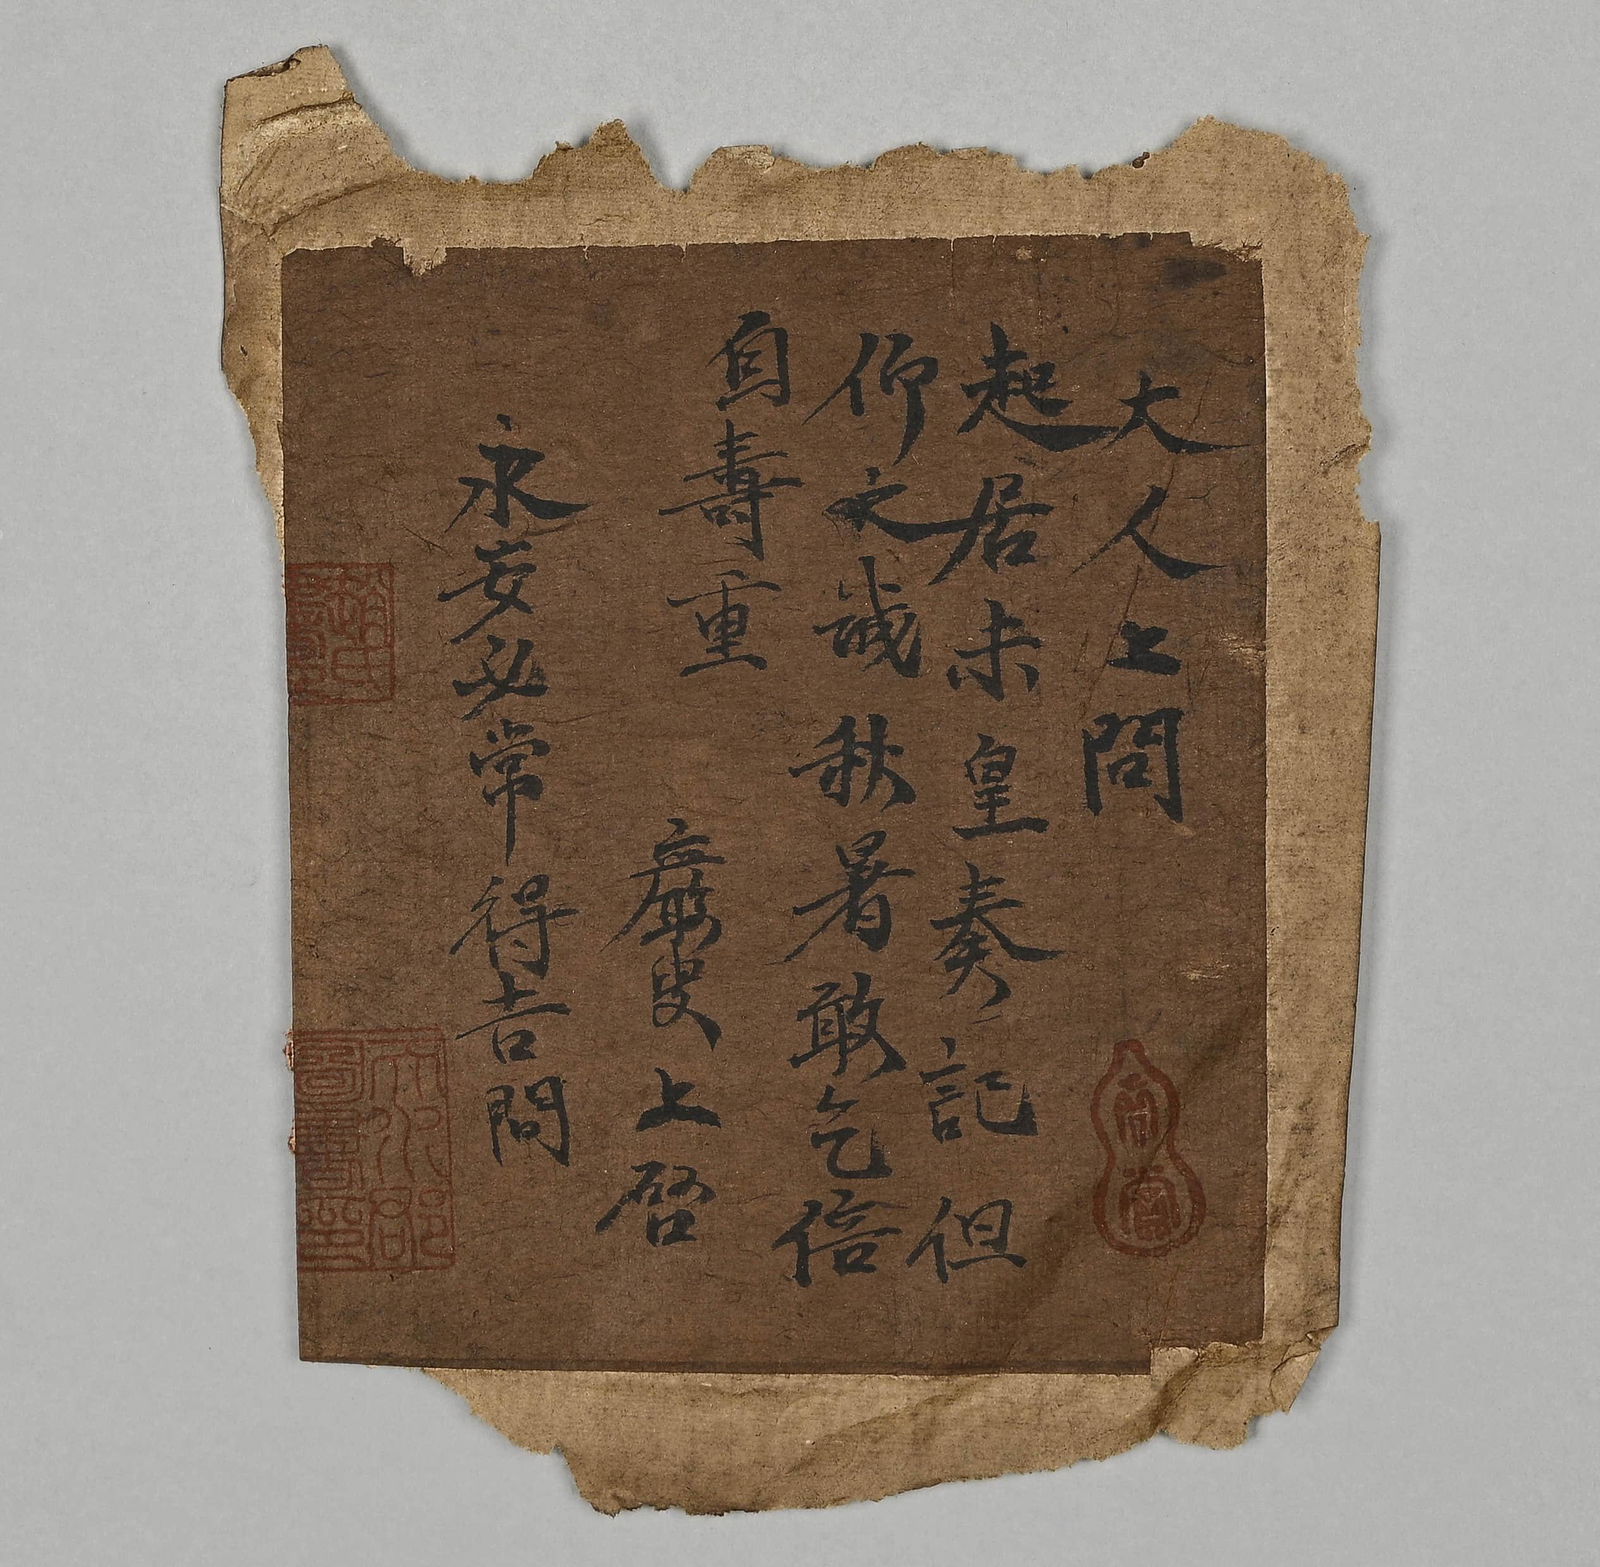 大人上問
起居未皇奏記但
仰之誠秋暑敢乞倍
自壽重
巖叟上啓
永安必常得吉問